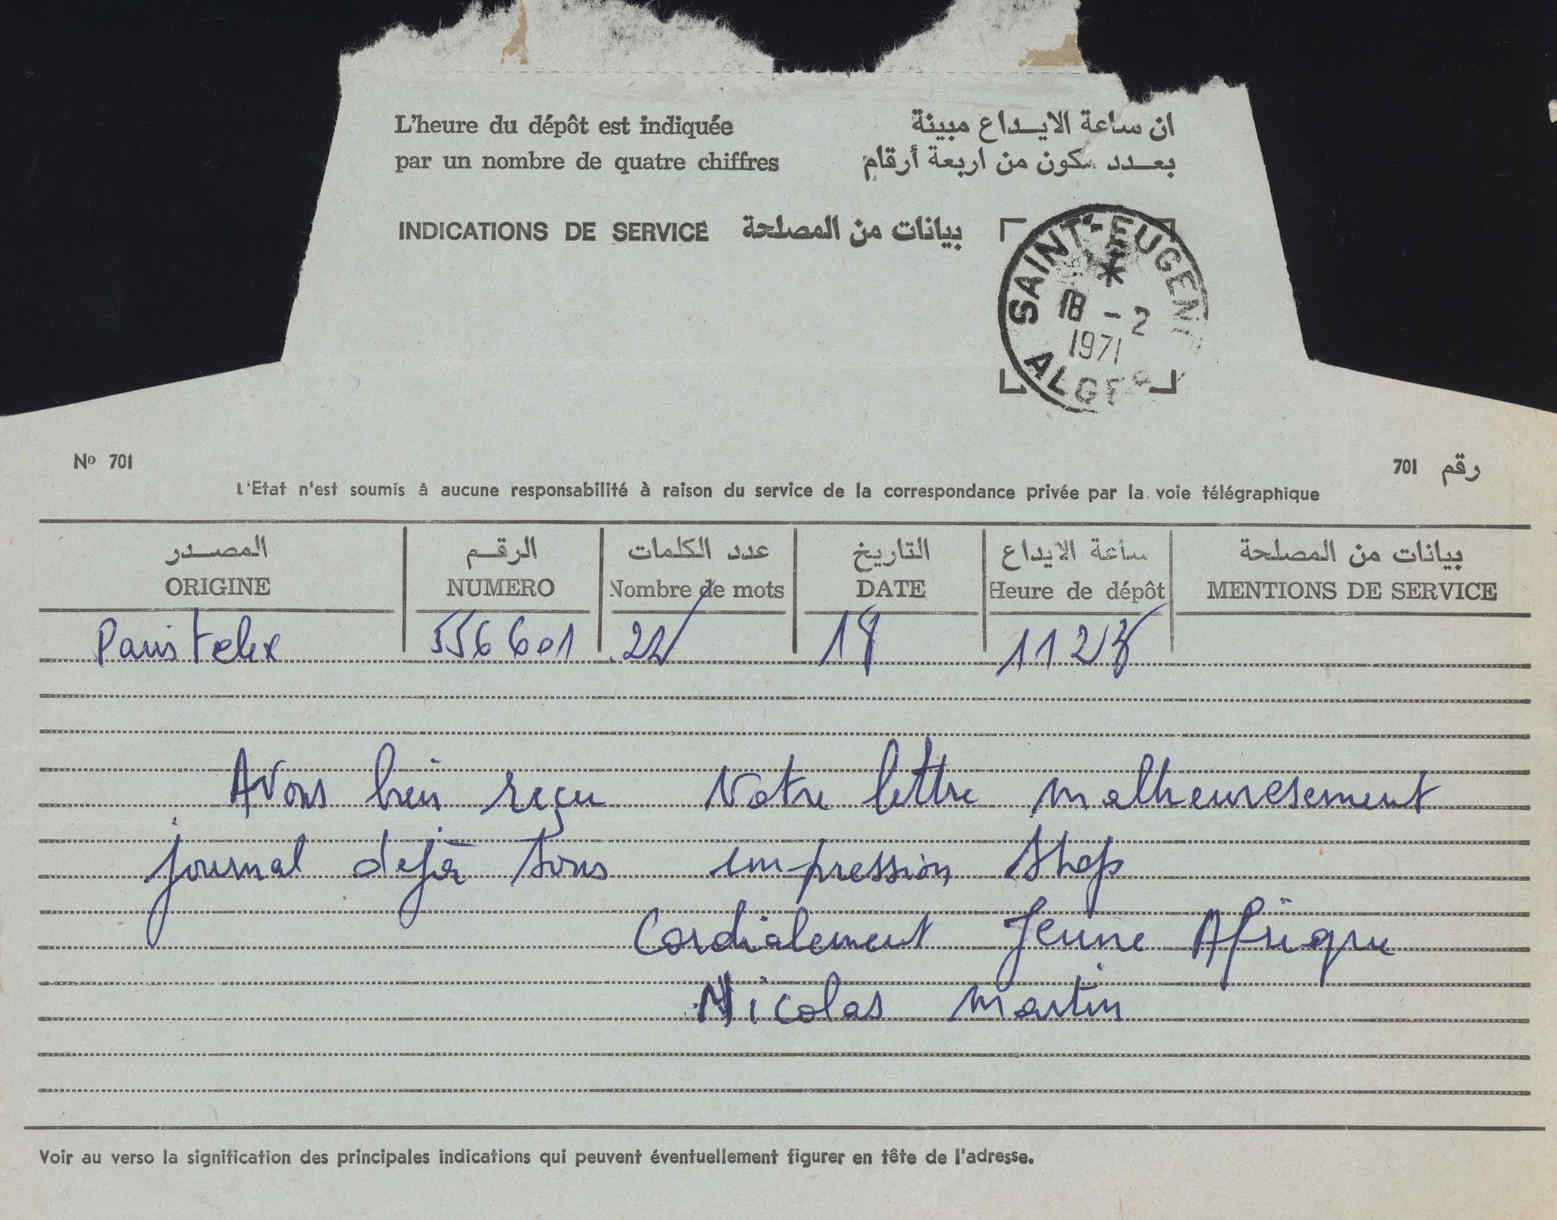 L'heure du dépôt est indiquée
par un nombre de quatre chiffres
ان ساعة الايداع مبينة
بعدد سكون من اربعة أرقام
INDICATIONS DE SERVICE بيانات من المصلحة
SAINT-EUGENE
18 - 2
1971
ALGER
Nº 701
701 رقم
L'Etat n'est soumis à aucune responsabilité à raison du service de la correspondance privée par la voie télégraphique
المصدر الرقم عدد الكلمات التاريخ ساعة الايداع بيانات من المصلحة
ORIGINE NUMERO Nombre de mots DATE Heure de dépôt MENTIONS DE SERVICE
Paris telex 556601 22 18
Avons bien reçu votre lettre malheuresement
journal dejà sous impression stop
Cordialement Jeune Afrique
Nicolas Martin
Voir au verso la signification des principales indications qui peuvent éventuellement figurer en tête de l'adresse.